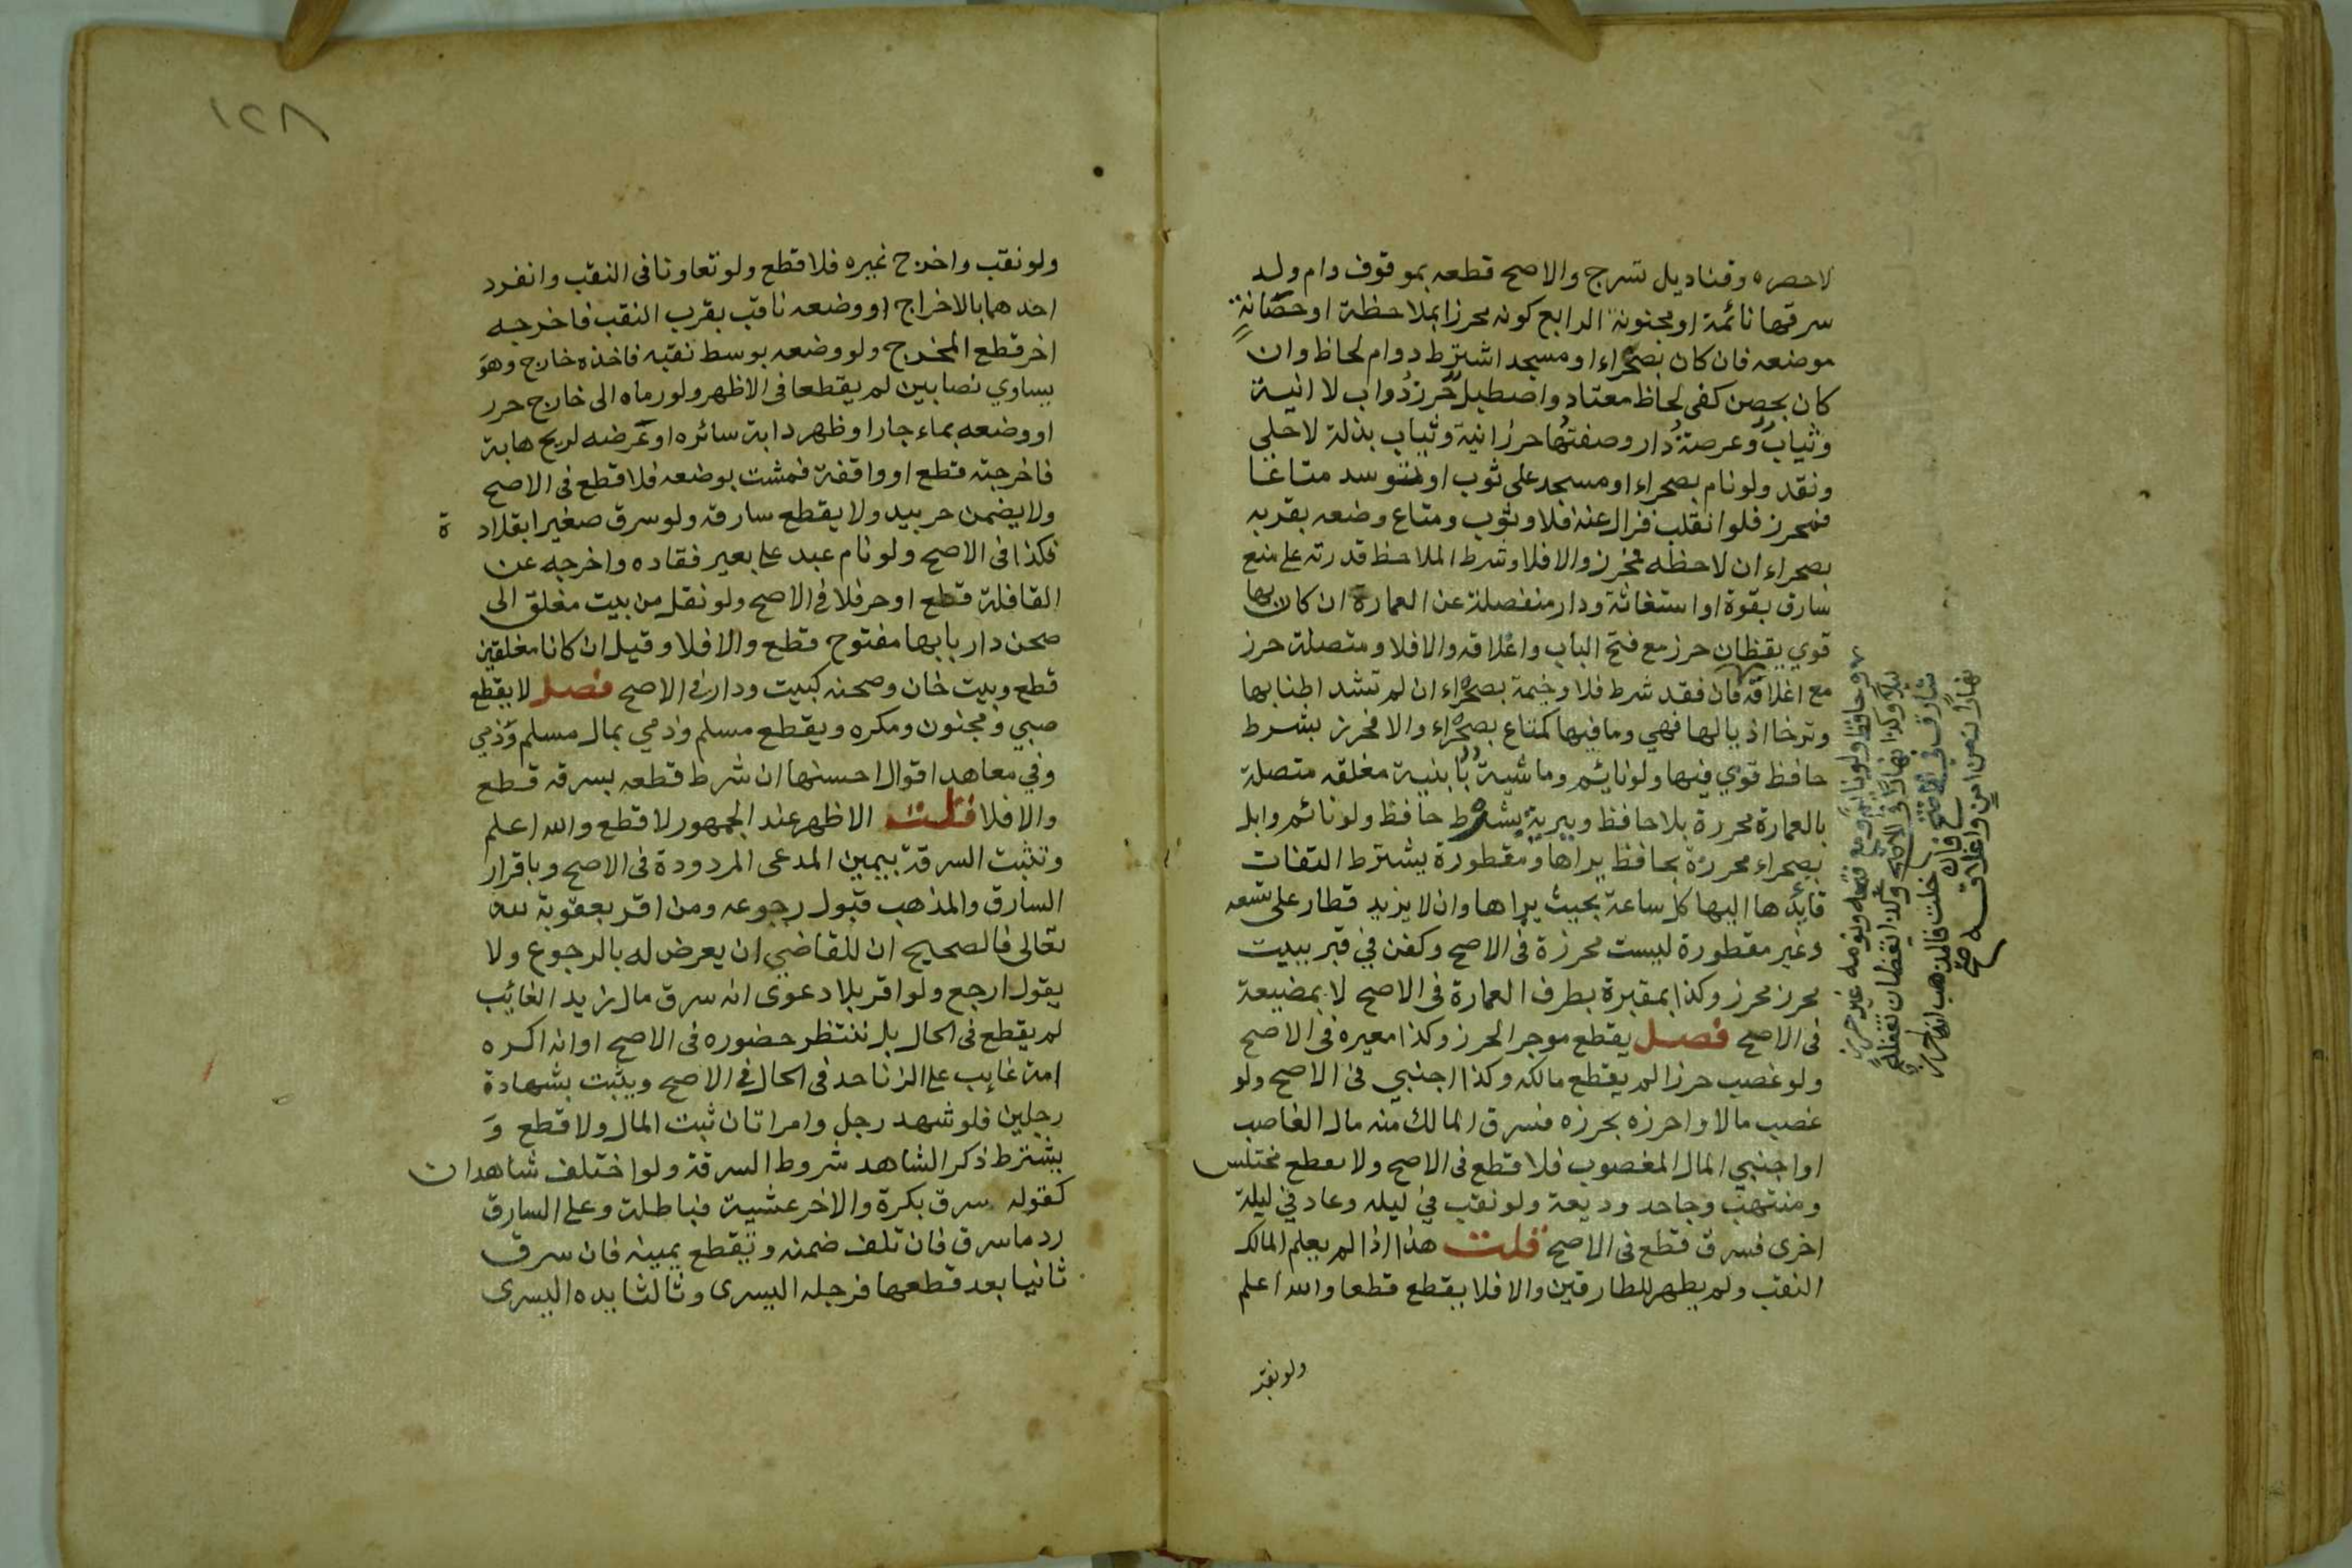 لاحصره وقناديل تسرج والاصح قطعه بموقوف وام ولد
سرقها نائمة او مجنونة الرابع كونه محرزا بملاحظة او حصانة
موضعه فان كان بصحراء او مسجد اشترط دوام لحاظ وان
كان بحصن كفى لحاظ معتاد واصطبل حرز دواب لا انية
وثياب وعرصة دار وصفتها حرز انية وثياب بذلة لا حلي
ونقد ولو نام بصحراء او مسجد على ثوب او توسد متاعا
فمحرز فلو انقلب فزال عنه فلا وثوب ومتاع وضعه بقربه
بصحراء ان لاحظه محرز والا فلا وشرط الملاحظ قدرته على منع
سارق بقوة او استغاثة ودار منفصلة عن العمارة ان كان بها
قوي يقظان حرز مع فتح الباب واغلاقه والا فلا ومتصلة حرز
مع اغلاقه فان فقد شرط فلا وخيمة بصحراء ان لم تشد اطنابها
وترخا اذيالها فهي وما فيها كمتاع بصحراء والا فمحرز بشرط
حافظ قوي فيها ولو نايم وماشية بابنية مغلقه متصلة
بالعمارة محرزة بلا حافظ وببرية يشترط حافظ ولو نائم وابل
بصحراء محرزة بحافظ يراها ومقطورة يشترط التفات
قايدها اليها كل ساعة بحيث يراها وان لا يزيد قطار على تسعه
وغير مقطورة ليست محرزة فى الاصح وكفن في قبر ببيت
محرز محرز وكذا بمقبرة بطرف العمارة فى الاصح لا بمضيعة
فى الاصح فصل يقطع موجر الحرز وكذا معيره فى الاصح
ولو غصب حرزا لم يقطع مالكه وكذا اجنبي فى الاصح ولو
غصب مالا واحرزه بحرزه فسرق المالك منه مال الغاصب
او اجنبي المال المغصوب فلا قطع فى الاصح ولا يقطع مختلس
ومنتهب وجاحد وديعة ولو نقب في ليله وعاد في ليلة
اخرى فسرق قطع فى الاصح قلت هذا اذا لم يعلم المالك
النقب ولم يظهر للطارقين والا فلا يقطع قطعا والله اعلم
ولو نقب
وحافظ ولو نائم ومع فتحه ونومه غير حرز
ليلا وكذا نهارا فى الاصح وكذا يقظان تغفله
سارق في الاصح فان خلت فالمذهب انها حرز
نهارا زمن امن واغلاقه صح
١٢٨
ولو نقب واخرج غيره فلا قطع ولو تعاونا فى النقب وانفرد
احدهما بالاخراج او وضعه ناقب بقرب النقب فاخرجه
اخر قطع المخرج ولو وضعه بوسط نقبه فاخذه خارج وهو
يساوي نصابين لم يقطعا فى الاظهر ولو رماه الى خارج حرز
او وضعه بماء جار او ظهر دابة سائره او عرضه لريح هابة
فاخرجته قطع او واقفة فمشت بوضعه فلا قطع فى الاصح
ولا يضمن حر بيد ولا يقطع سارقه ولو سرق صغيرا بقلادة
فكذا فى الاصح ولو نام عبد على بعير فقاده واخرجه عن
القافلة قطع او حر فلا في الاصح ولو نقل من بيت مغلق الى
صحن دار بابها مفتوح قطع والا فلا وقيل ان كانا مغلقين
قطع وبيت خان وصحنه كبيت ودار في الاصح فصل لا يقطع
صبي ومجنون ومكره ويقطع مسلم وذمي بمال مسلم وذمي
وفي معاهد اقوال احسنها ان شرط قطعه بسرقه قطع
والا فلا قلت الاظهر عند الجمهور لا قطع والله اعلم
وتثبت السرقة بيمين المدعى المردودة فى الاصح وباقرار
السارق والمذهب قبول رجوعه ومن اقر بعقوبة لله
تعالى فالصحيح ان للقاضي ان يعرض له بالرجوع ولا
يقول ارجع ولو اقر بلا دعوى انه سرق مال زيد الغائب
لم يقطع فى الحال بل ننتظر حضوره فى الاصح او انه اكره
امة غايب على الزنا حد فى الحال في الاصح ويثبت بشهادة
رجلين فلو شهد رجل وامراتان ثبت المال ولا قطع و
يشترط ذكر الشاهد شروط السرقة ولو اختلف شاهدان
كقوله سرق بكرة والاخر عشية فباطلة وعلى السارق
رد ما سرق فان تلف ضمنه ويقطع يمينه فان سرق
ثانيا بعد قطعها فرجله اليسرى وثالثا يده اليسرى